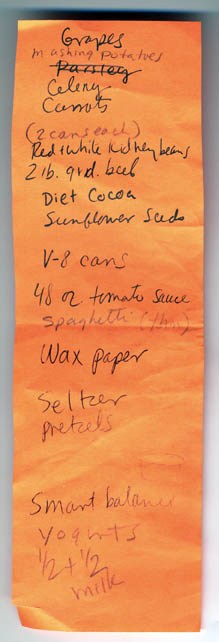 Grapes
mashing potatoes
Parsley
Celery
Carrots
(2 cans each)
Red + white Kidney beans
2 lb. grd. beef
Diet Cocoa
Sunflower Seeds
V-8 cans
48 oz tomato sauce
spaghetti
Wax paper
Seltzer
pretzels
Smart balance
yogurts
1/2 + 1/2
milk